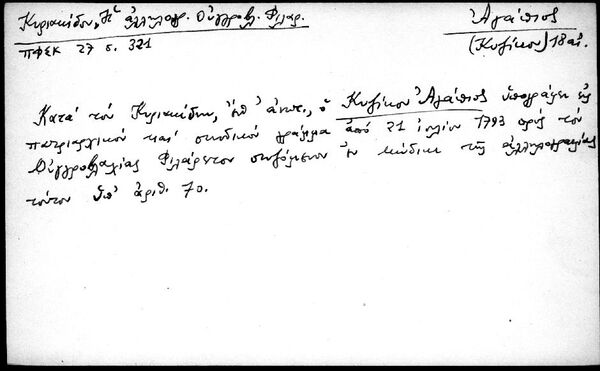 Κυριακίδου, Ἡ ἀλληλογρ. Οὑγγροβλ. Φιλαρ.
ΠΦΣΚ 27 σ. 321
Ἀγάπιος
(Κυζίκου) 18 αἰ.
Κατά τόν Κυριακίδην, ὁ Κυζίκου Ἀγάπιος ὑπογράφει εἰς
πατριαρχικόν καί συνοδικόν γράμμα ἀπό 21 ἰουλίου 1793 πρός τόν
Οὑγγροβλαχίας Φιλάρετον σωζόμενον ἐν κώδικι τῆς ἀλληλογραφίας
τούτου ὑπ' ἀριθ. 70.